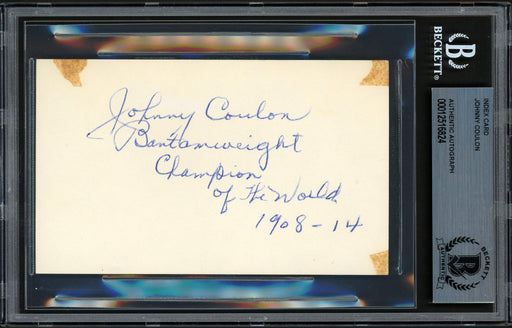 Johnny Coulon
Bantamweight
Champion
of the World
1908-14
BECKETT®
INDEX CARD
JOHNNY COULON
AUTHENTIC AUTOGRAPH
00012516824
BECKETT
AUTHENTICATED